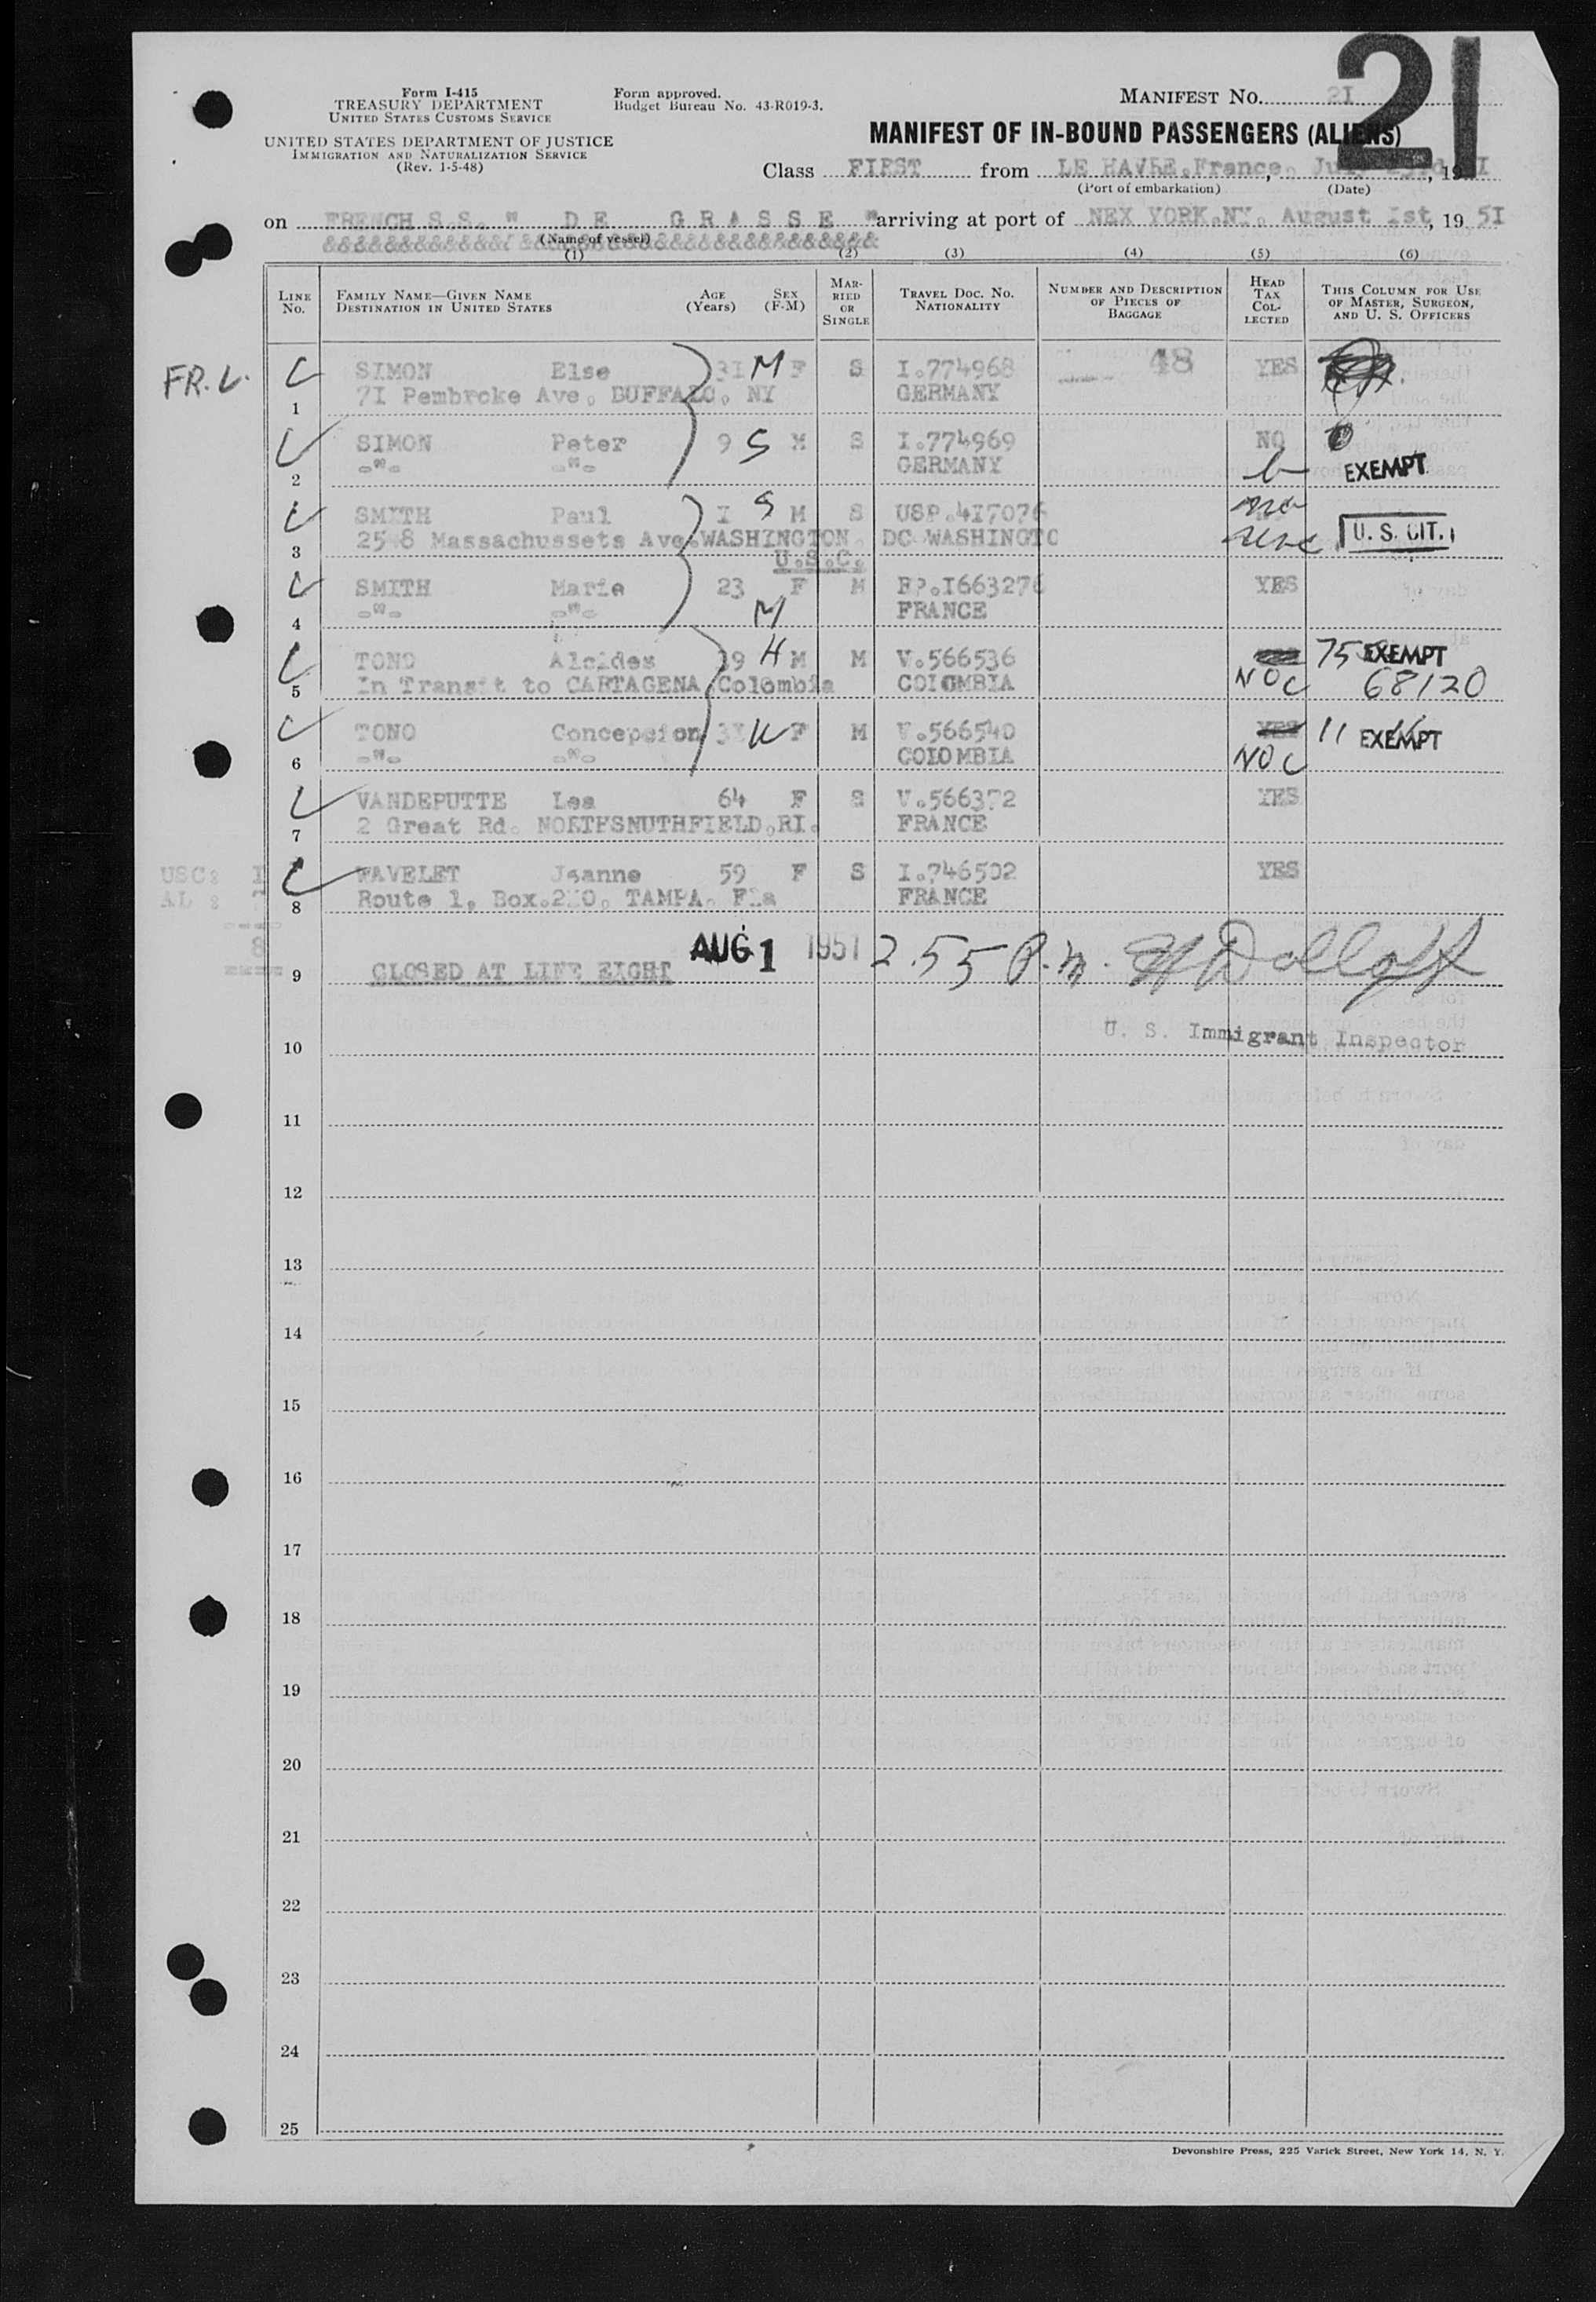 21
Form I-415
TREASURY DEPARTMENT
UNITED STATES CUSTOMS SERVICE
UNITED STATES DEPARTMENT OF JUSTICE
IMMIGRATION AND NATURALIZATION SERVICE
(Rev. 1-5-48)
Form approved.
Budget Bureau No. 43-R019-3.
MANIFEST NO. 2I
MANIFEST OF IN-BOUND PASSENGERS (ALIENS)
Class FIRST from LE HAVRE.France. , 19 I
(Port of embarkation) (Date)
on FRENCH S.S. " D E G R A S S E " arriving at port of NEX YORK.NY. August Ist, 19 5I
(Name of vessel)
(1) (2) (3) (4) (5) (6)
LINE No. FAMILY NAME—GIVEN NAME DESTINATION IN UNITED STATES AGE (Years) SEX (F-M) MARRIED OR SINGLE TRAVEL DOC. NO. NATIONALITY NUMBER AND DESCRIPTION OF PIECES OF BAGGAGE HEAD TAX COLLECTED THIS COLUMN FOR USE OF MASTER, SURGEON, AND U. S. OFFICERS
FR. V. SIMON Else 3I M F S I.774968 48 YES
1 7I Pembroke Ave. BUFFALO. NY GERMANY
SIMON Peter 9 S M S I.774969 NO
2 -"- -"- GERMANY EXEMPT
SMITH Paul I S M S USP.4I7076
3 Massachussets Ave.WASHINGTON. DC WASHINGTO U. S. CIT.
U.S.C.
SMITH Marie 23 F M FP.I663276 YES
4 -"- -"- M FRANCE
TONO Alcides 39 H M M V.566536 75 EXEMPT
5 In Transit to CARTAGENA Colombia COLOMBIA NOC 68120
TONO Concepcion W F M V.566540 YES 11 EXEMPT
6 -"- -"- COLOMBIA NOC
VANDEPUTTE Lea 64 F S V.566372 YES
7 2 Great Rd. RI. FRANCE
USC: I WAVELET Jeanne 59 F S I.746502 YES
AL : 7 8 Route 1, Box.2I0. TAMPA. Fla FRANCE
8
9 CLOSED AT LINE EIGHT AUG 1 1951 2.55 P.m. H Dolloff
10 U. S. Immigrant Inspector
11
12
13
14
15
16
17
18
19
20
21
22
23
24
25
Devonshire Press, 225 Varick Street, New York 14, N. Y.